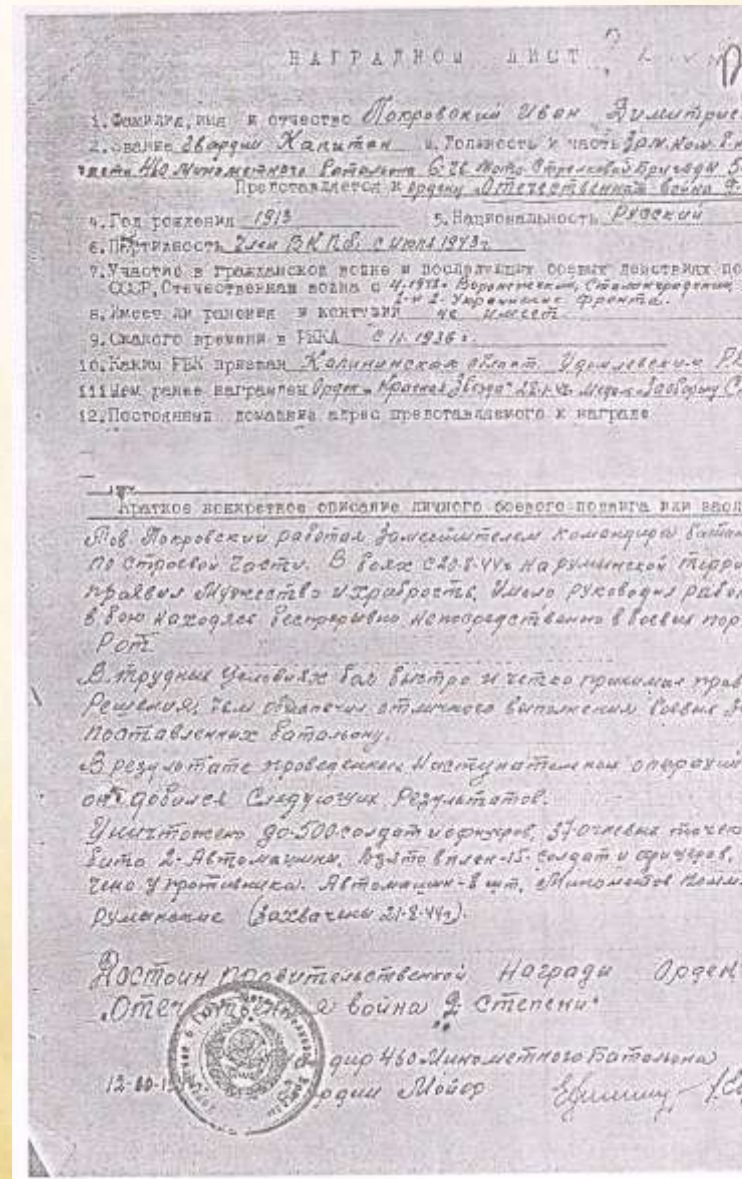 НАГРАДНОЙ ЛИСТ
1. Фамилия, имя и отчество Покровский Иван Димитрие
2. Звание Гвардии Капитан 3. Должность и часть Зам. Ком. б-на
части 460 Минометного Батальона 6
Представляется к ордену „Отечественная война 2
4. Год рождения 1913 5. Национальность Русский
6. Партийность Член ВКПб. с Июля 1943г
7. Участие в гражданской войне и последующих боевых действиях по
СССР, Отечественная война с 4.1942. Воронежский, Сталинградский,
2-й Украинские фронта.
8. Имеет ли ранения и контузии не имеет
9. С какого времени в РККА С 11. 1936 г.
10. Каким РВК призван Калининская област. Удомлевским Р.В
11. Чем ранее награжден Орден „Красная Звезда" медал
12. Постоянный домашний адрес представляемого к награде
Краткое конкретное описание личного боевого подвига или засл
Тов Покровский работал Заместителем командира батал
по строевой части. В боях с 20.8.44г на румынской терри
проявил Мужество и храбрость, Умело руководил рабо
в бою находясь беспрерывно непосредственно в боевых пор
Рот.
В трудных условиях боя быстро и четко принимал прав
Решения, чем обеспечил отличного выполнения боевых з
поставленных батальону.
В результате проведенных Наступательных операции
он добился Следующих Результатов.
Уничтожено до-500 солдат и офицеров, 37-огневых точек
бито 2-Автомашины, Взято в плен-15-солдат и офицеров,
чено у противника. Автомашин-8 шт, Минометов
румынские (захвачены 21-8-44г).
Достоин правительственной Награды Орден
„Отеч а война 2 степени"
дир 460 Минометного батальона
рдии Майор